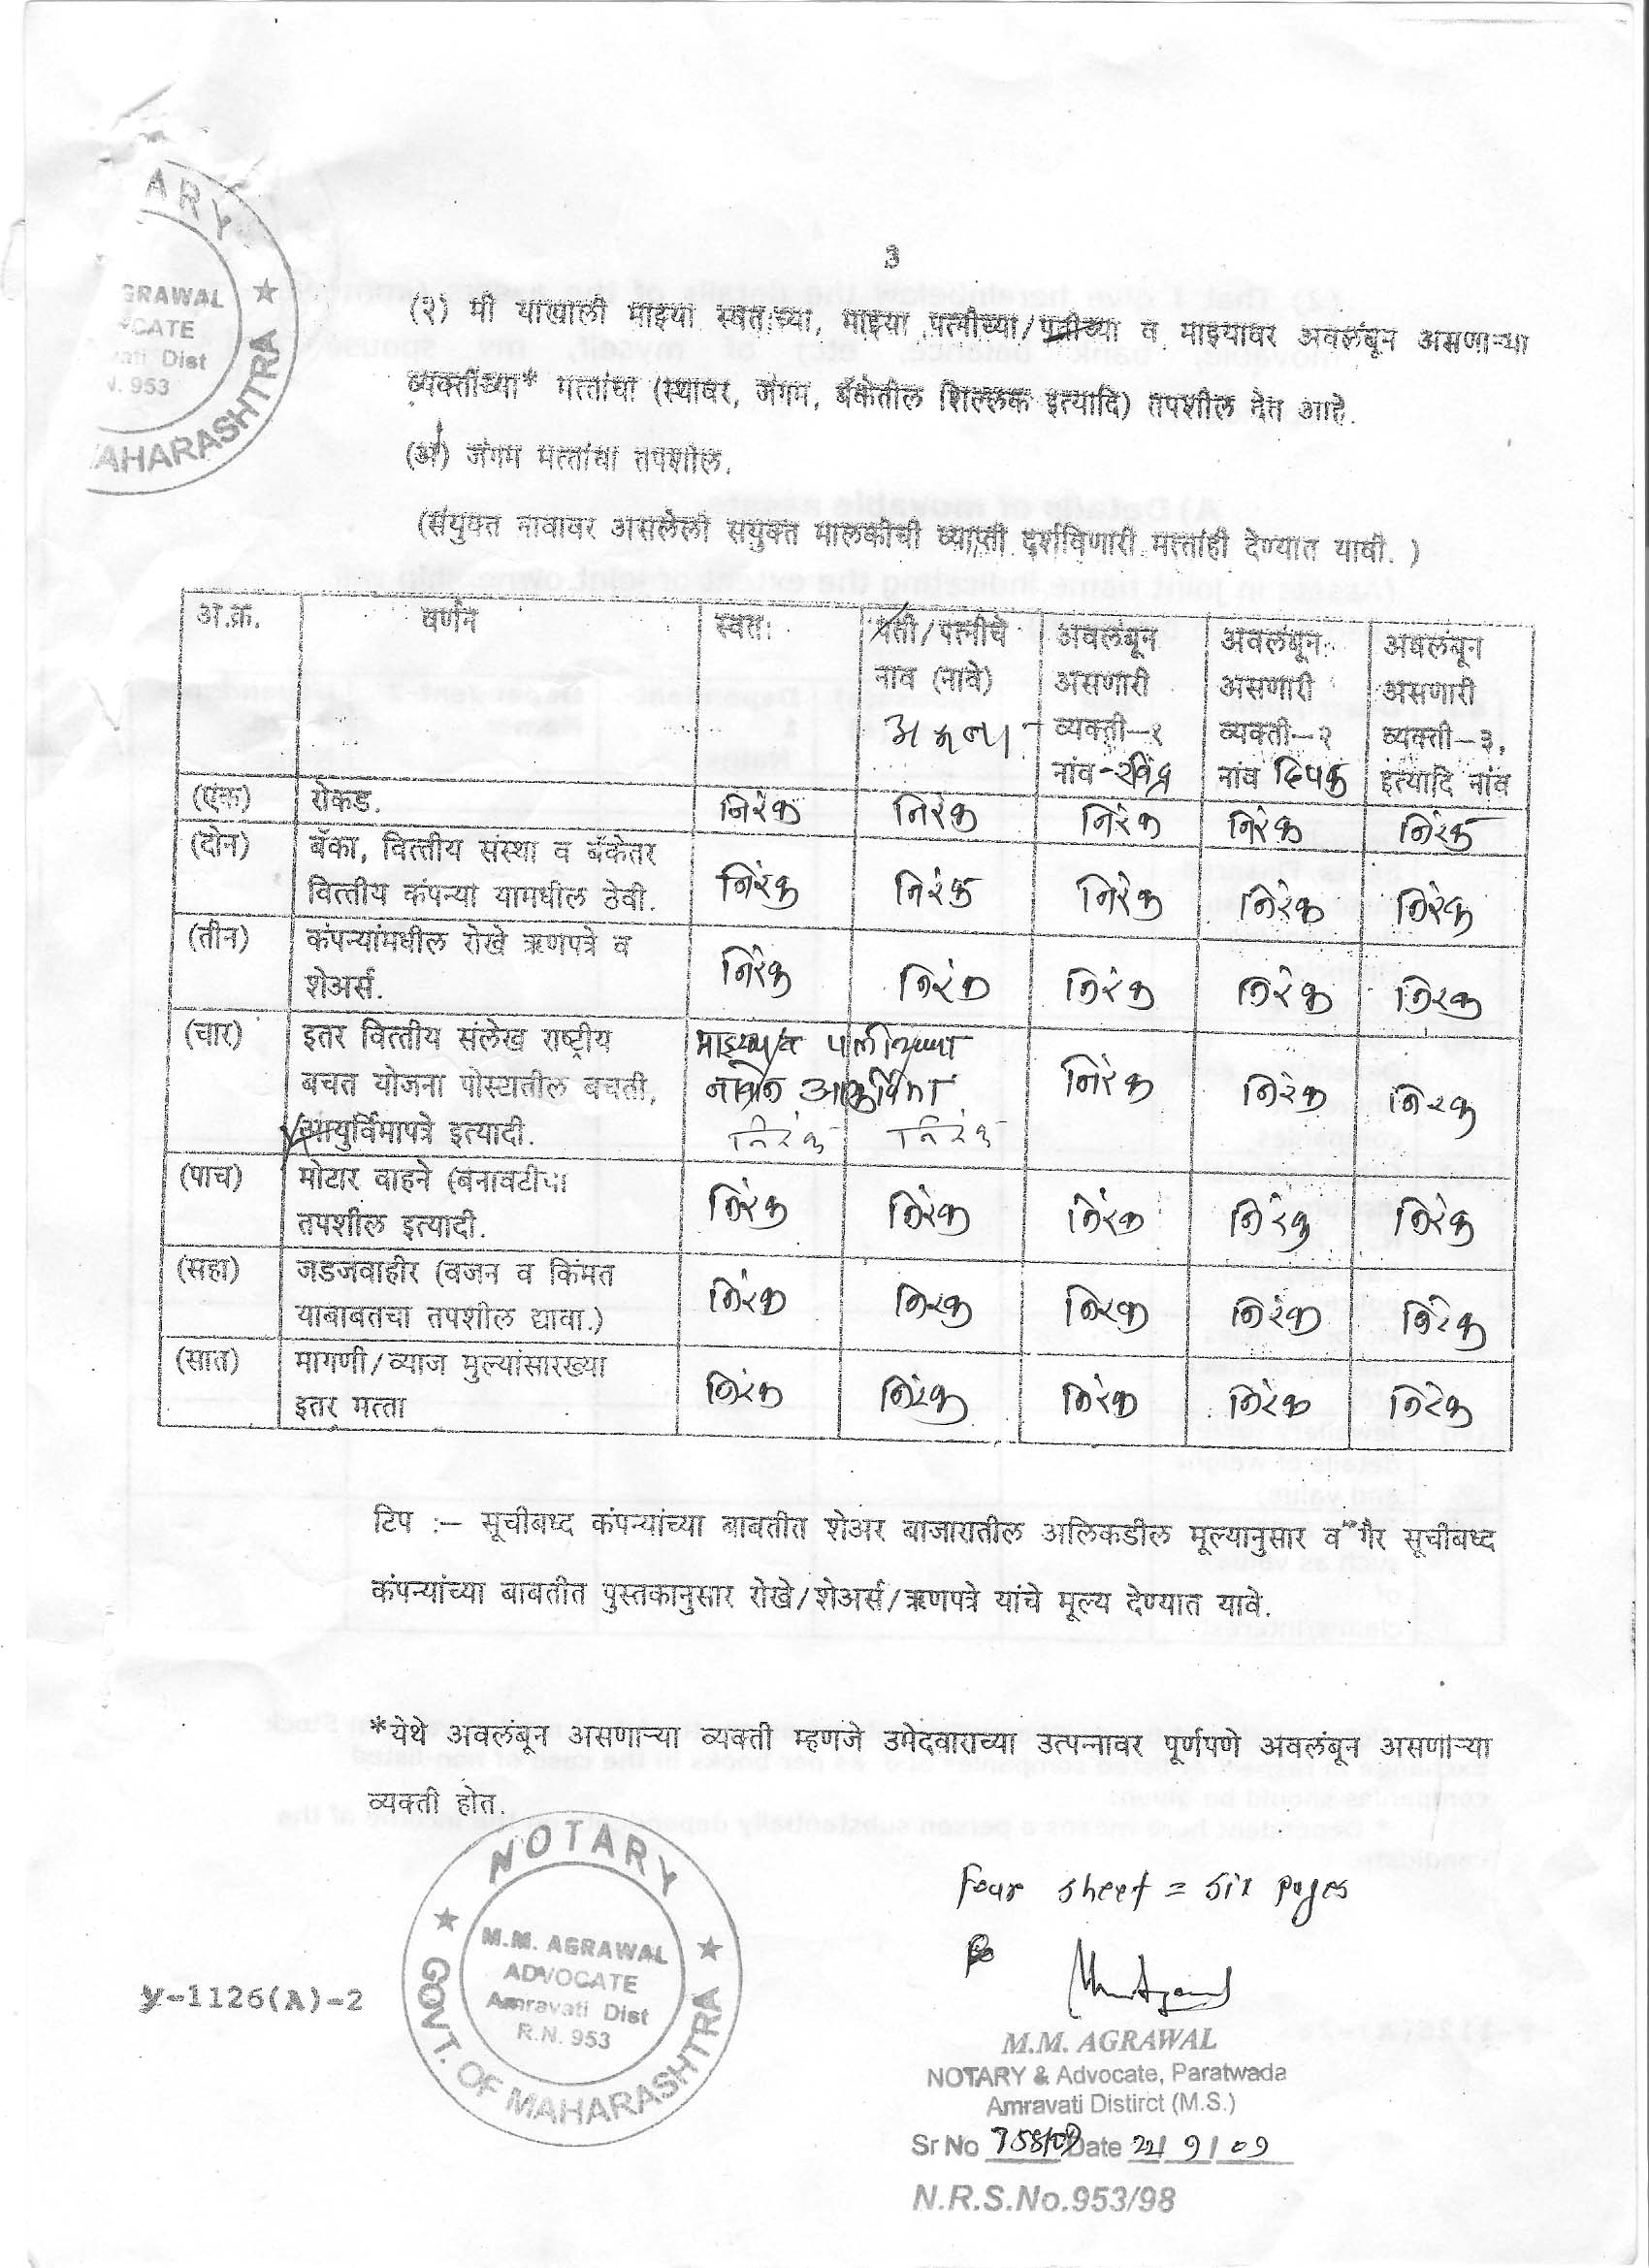 ARY
GRAWAL
CATE
vati Dist
N. 953
MAHARASHTRA
3
(२) मी याखाली माझ्या स्वतःच्या, माझ्या पत्नीच्या/पतीच्या व माझ्यावर अवलंबून असणाऱ्या
व्यक्तींच्या* मत्तांचा (स्थावर, जंगम, बँकेतील शिल्लक इत्यादि) तपशील देत आहे.
(अ) जंगम मत्तांचा तपशील.
(संयुक्त नावावर असलेली संयुक्त मालकीची व्याप्ती दर्शविणारी मत्ताही देण्यात यावी.)
अ.क्र. वर्णन स्वतः पती/पत्नीचे नाव (नावे) अवलंबून असणारी व्यक्ती-१ नांव-रविंद्र अवलंबून असणारी व्यक्ती-२ नांव दिपक अवलंबून असणारी व्यक्ती-३, इत्यादि नांव
(एक) रोकड. निरंक निरंक निरंक निरंक निरंक
(दोन) बँका, वित्तीय संस्था व बँकेतर
वित्तीय कंपन्या यामधील ठेवी. निरंक निरंक निरंक निरंक निरंक
(तीन) कंपन्यांमधील रोखे ऋणपत्रे व
शेअर्स. निरंक निरंक निरंक निरंक निरंक
(चार) इतर वित्तीय संलेख राष्ट्रीय
बचत योजना पोस्टातील बचती,
आयुर्विमापत्रे इत्यादी. निरंक निरंक निरंक निरंक निरंक
(पाच) मोटार वाहने (बनावटीचा
तपशील इत्यादी. निरंक निरंक निरंक निरंक निरंक
(सहा) जडजवाहीर (वजन व किंमत
याबाबतचा तपशील द्यावा.) निरंक निरंक निरंक निरंक निरंक
(सात) मागणी/व्याज मुल्यांसारख्या
इतर मत्ता निरंक निरंक निरंक निरंक निरंक
टिप :- सूचीबध्द कंपन्यांच्या बाबतीत शेअर बाजारातील अलिकडील मूल्यानुसार व गैर सूचीबध्द
कंपन्यांच्या बाबतीत पुस्तकानुसार रोखे/शेअर्स/ऋणपत्रे यांचे मूल्य देण्यात यावे.
*येथे अवलंबून असणाऱ्या व्यक्ती म्हणजे उमेदवाराच्या उत्पन्नावर पूर्णपणे अवलंबून असणाऱ्या
व्यक्ती होत.
Four sheet = six pages
NOTARY
M.M. AGRAWAL
ADVOCATE
Amravati Dist
R.N. 953
GOVT. OF MAHARASHTRA
y-1126(A)-2
M.M. AGRAWAL
NOTARY & Advocate, Paratwada
Amravati Distirct (M.S.)
Sr No 758/09 Date 22/9/09
N.R.S.No.953/98